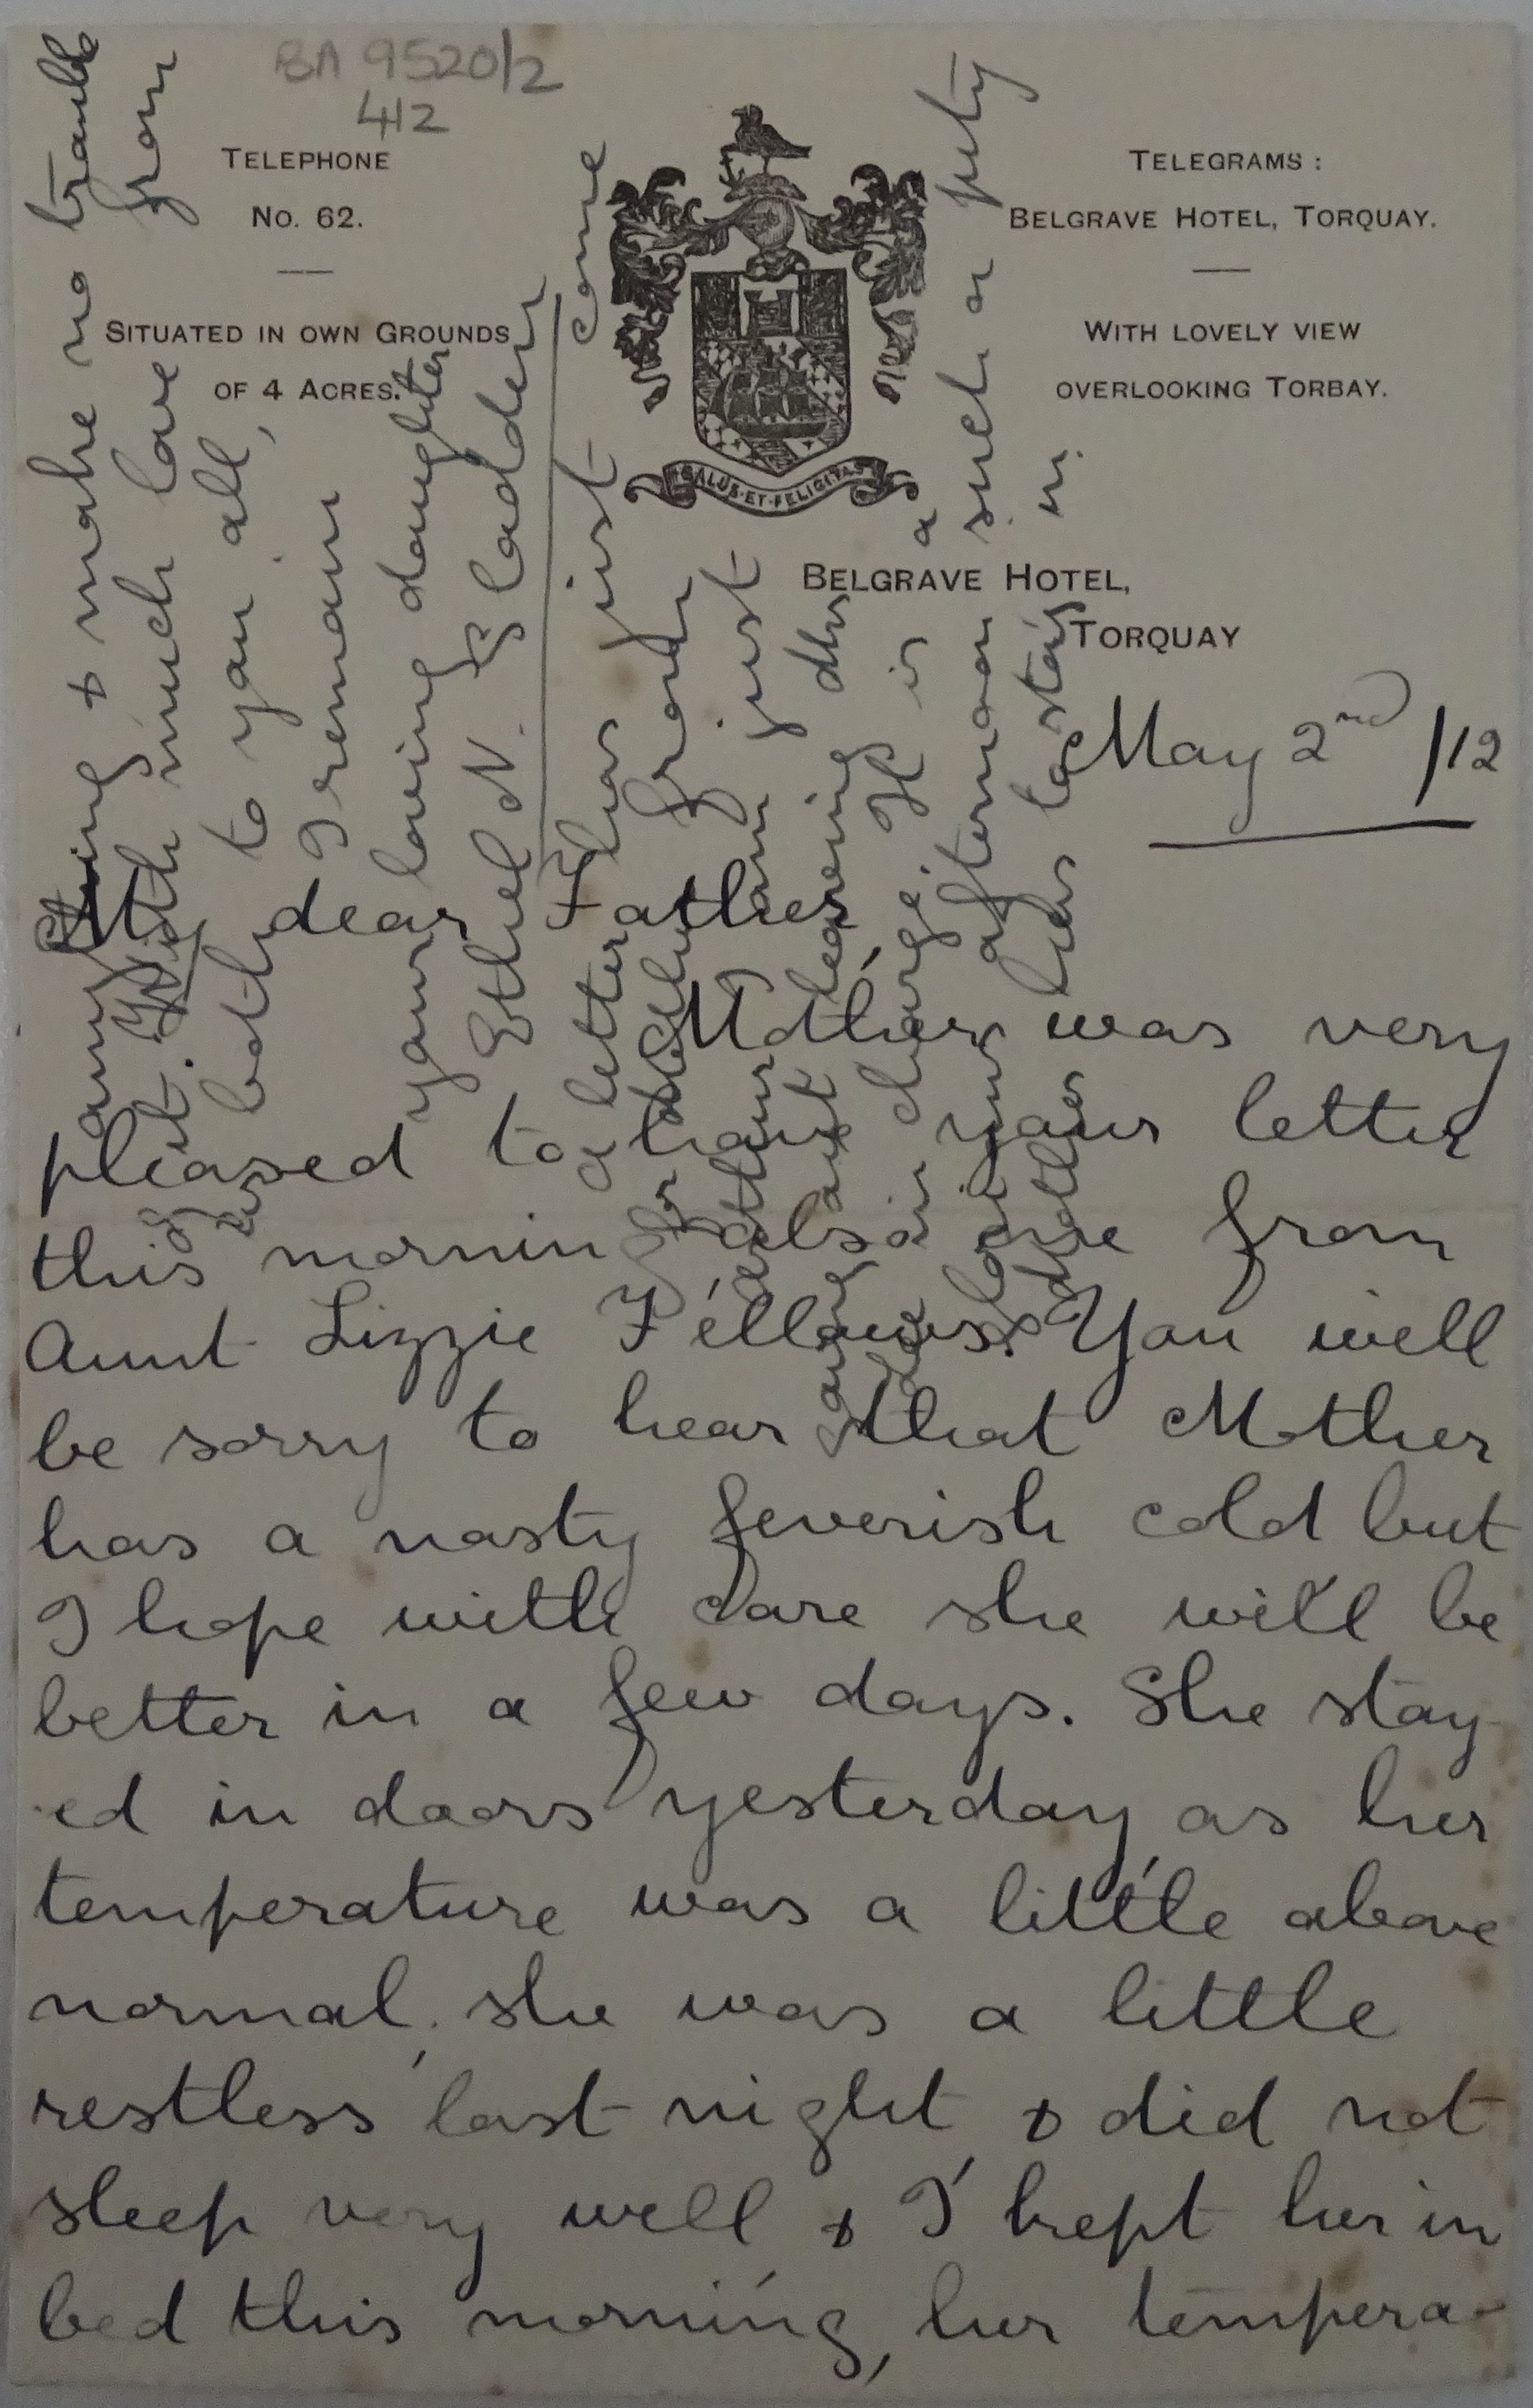 BA 9520/2
412
TELEPHONE
No. 62.
SITUATED IN OWN GROUNDS
OF 4 ACRES.
SALUS·ET·FELICITAS
TELEGRAMS:
BELGRAVE HOTEL, TORQUAY.
WITH LOVELY VIEW
OVERLOOKING TORBAY.
BELGRAVE HOTEL,
TORQUAY
May 2nd /12
My dear Father,
Mother was very
pleased to have your letter
this morning also one from
Aunt Lizzie Fellows. You will
be sorry to hear that Mother
has a nasty feverish cold but
I hope with care she will be
better in a few days. She stay-
-ed in doors yesterday, as her
temperature was a little above
normal; she was a little
restless last night, & did not
sleep very well & I kept her in
bed this morning, her tempera-
anything & make no trouble
of it. With much love from
us both to you all,
I remain
your loving daughter
Ethel N. Sladden
a letter has just come
for from
am just
going out leaving
in charge. It is a
lovely afternoon such a pity
Mother has to stay in.